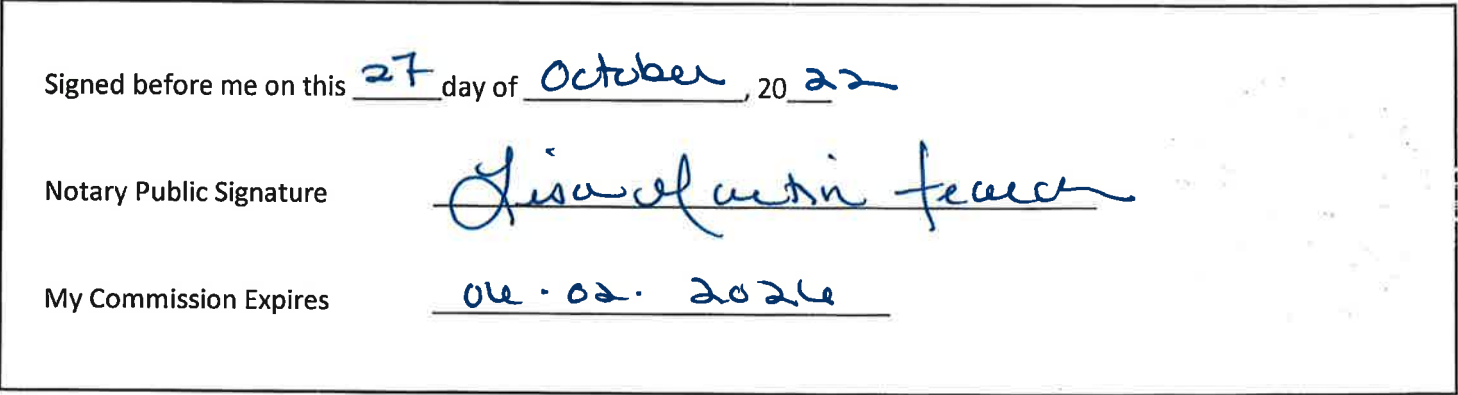 Signed before me on this 27 day of October, 20 22
Notary Public Signature Lisa Martin
My Commission Expires 06.02.2026